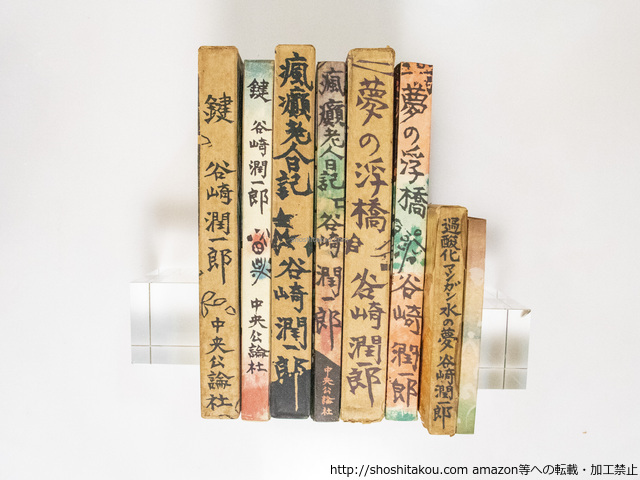 鍵 谷崎潤一郎 中央公論社
鍵 谷崎潤一郎 中央公論社
瘋癲老人日記 谷崎潤一郎
瘋癲老人日記 谷崎潤一郎 中央公論社
夢の浮橋 谷崎潤一郎
夢の浮橋 谷崎潤一郎
過酸化マンガン水の夢 谷崎潤一郎
http://shoshitakou.com amazon等への転載・加工禁止